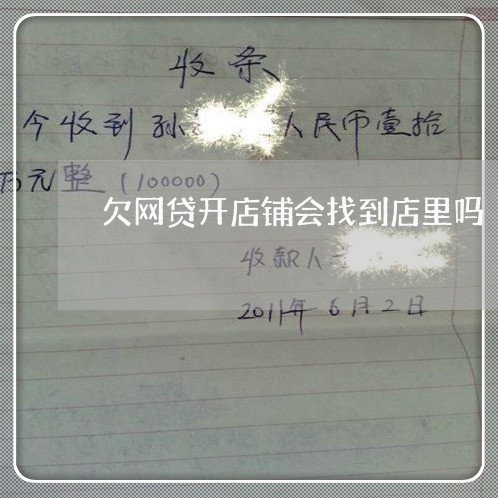 收条
今收到孙 人民币壹拾
万元整(100000)
欠网贷开店铺会找到店里吗
收款人
2011年6月2日